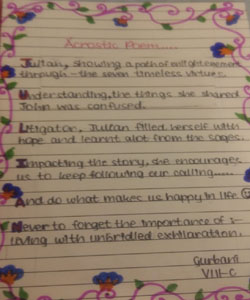 Acrostic Poem.....
Julian, showing a path of enlightenment
through - the seven timeless virtues.
Understanding, the things she shared
John was confused.
Litigator, Julian filled herself with
hope and learnt alot from the sages.
Impacting the story, she encourages
us to keep following our calling.....
And do what makes us happy in life
Never to forget the importance of :-
Living with unbridled exhilaration.
Gurbani
VIII-C